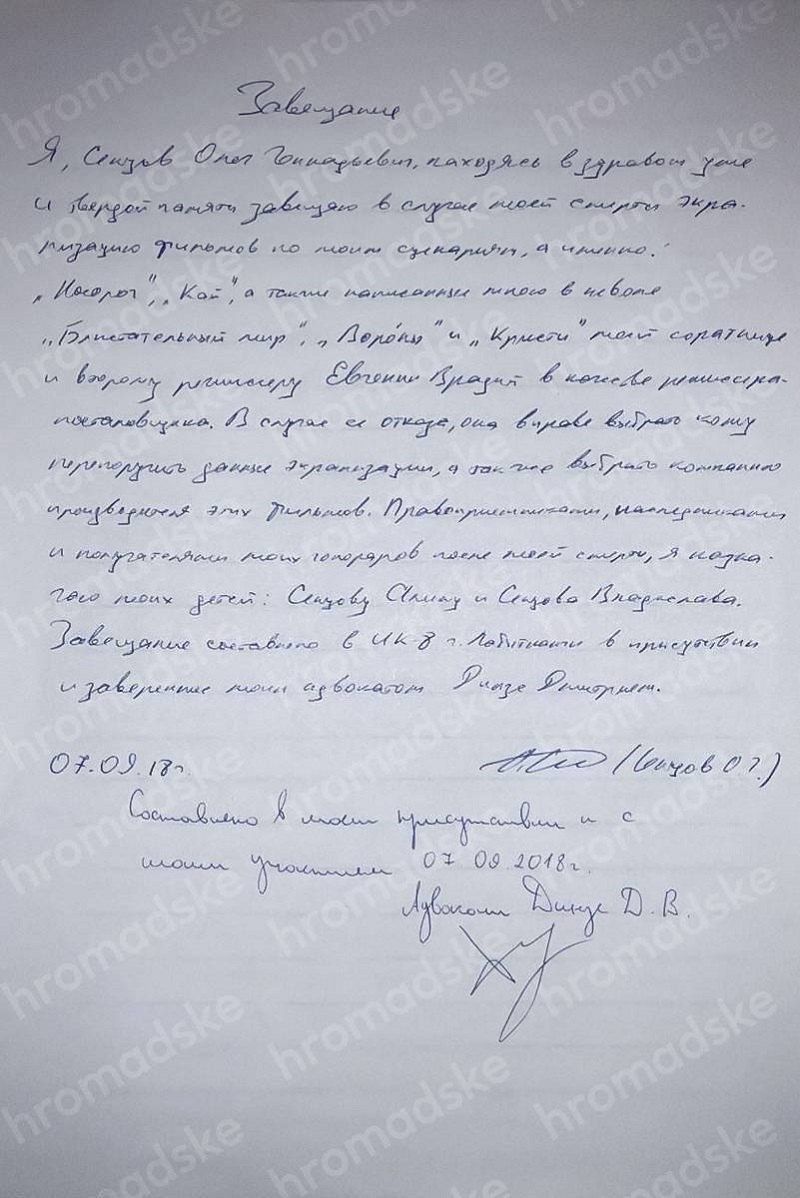 Завещание
Я, Сенцов Олег Геннадьевич, находясь в здравом уме
и твердой памяти завещаю в случае моей смерти экра-
низацию фильмов по моим сценариям, а именно:
„Носорог", „Кай", а также написанные мною в неволе
„Блистательный мир", „Воро́ны" и „Кристи" моей соратнице
и второму режиссеру Евгении Врадий в качестве режиссера-
постановщика. В случае ее отказа, она вправе выбрать кому
перепоручить данные экранизации, а также выбрать компанию
производителя этих фильмов. Правоприемниками, наследниками
и получателями моих гонораров после моей смерти, я назна-
чаю моих детей: Сенцову Алину и Сенцова Владислава.
Завещание составлено в ИК-8 г. Лабытнанги в присутствии
и заверенное моим адвокатом Динзе Дмитрием.
07.09.18г. (Сенцов О.Г.)
Составлено в моем присутствии и с
моим участием 07 09 2018г.
Адвокат Динзе Д.В.
hromadske